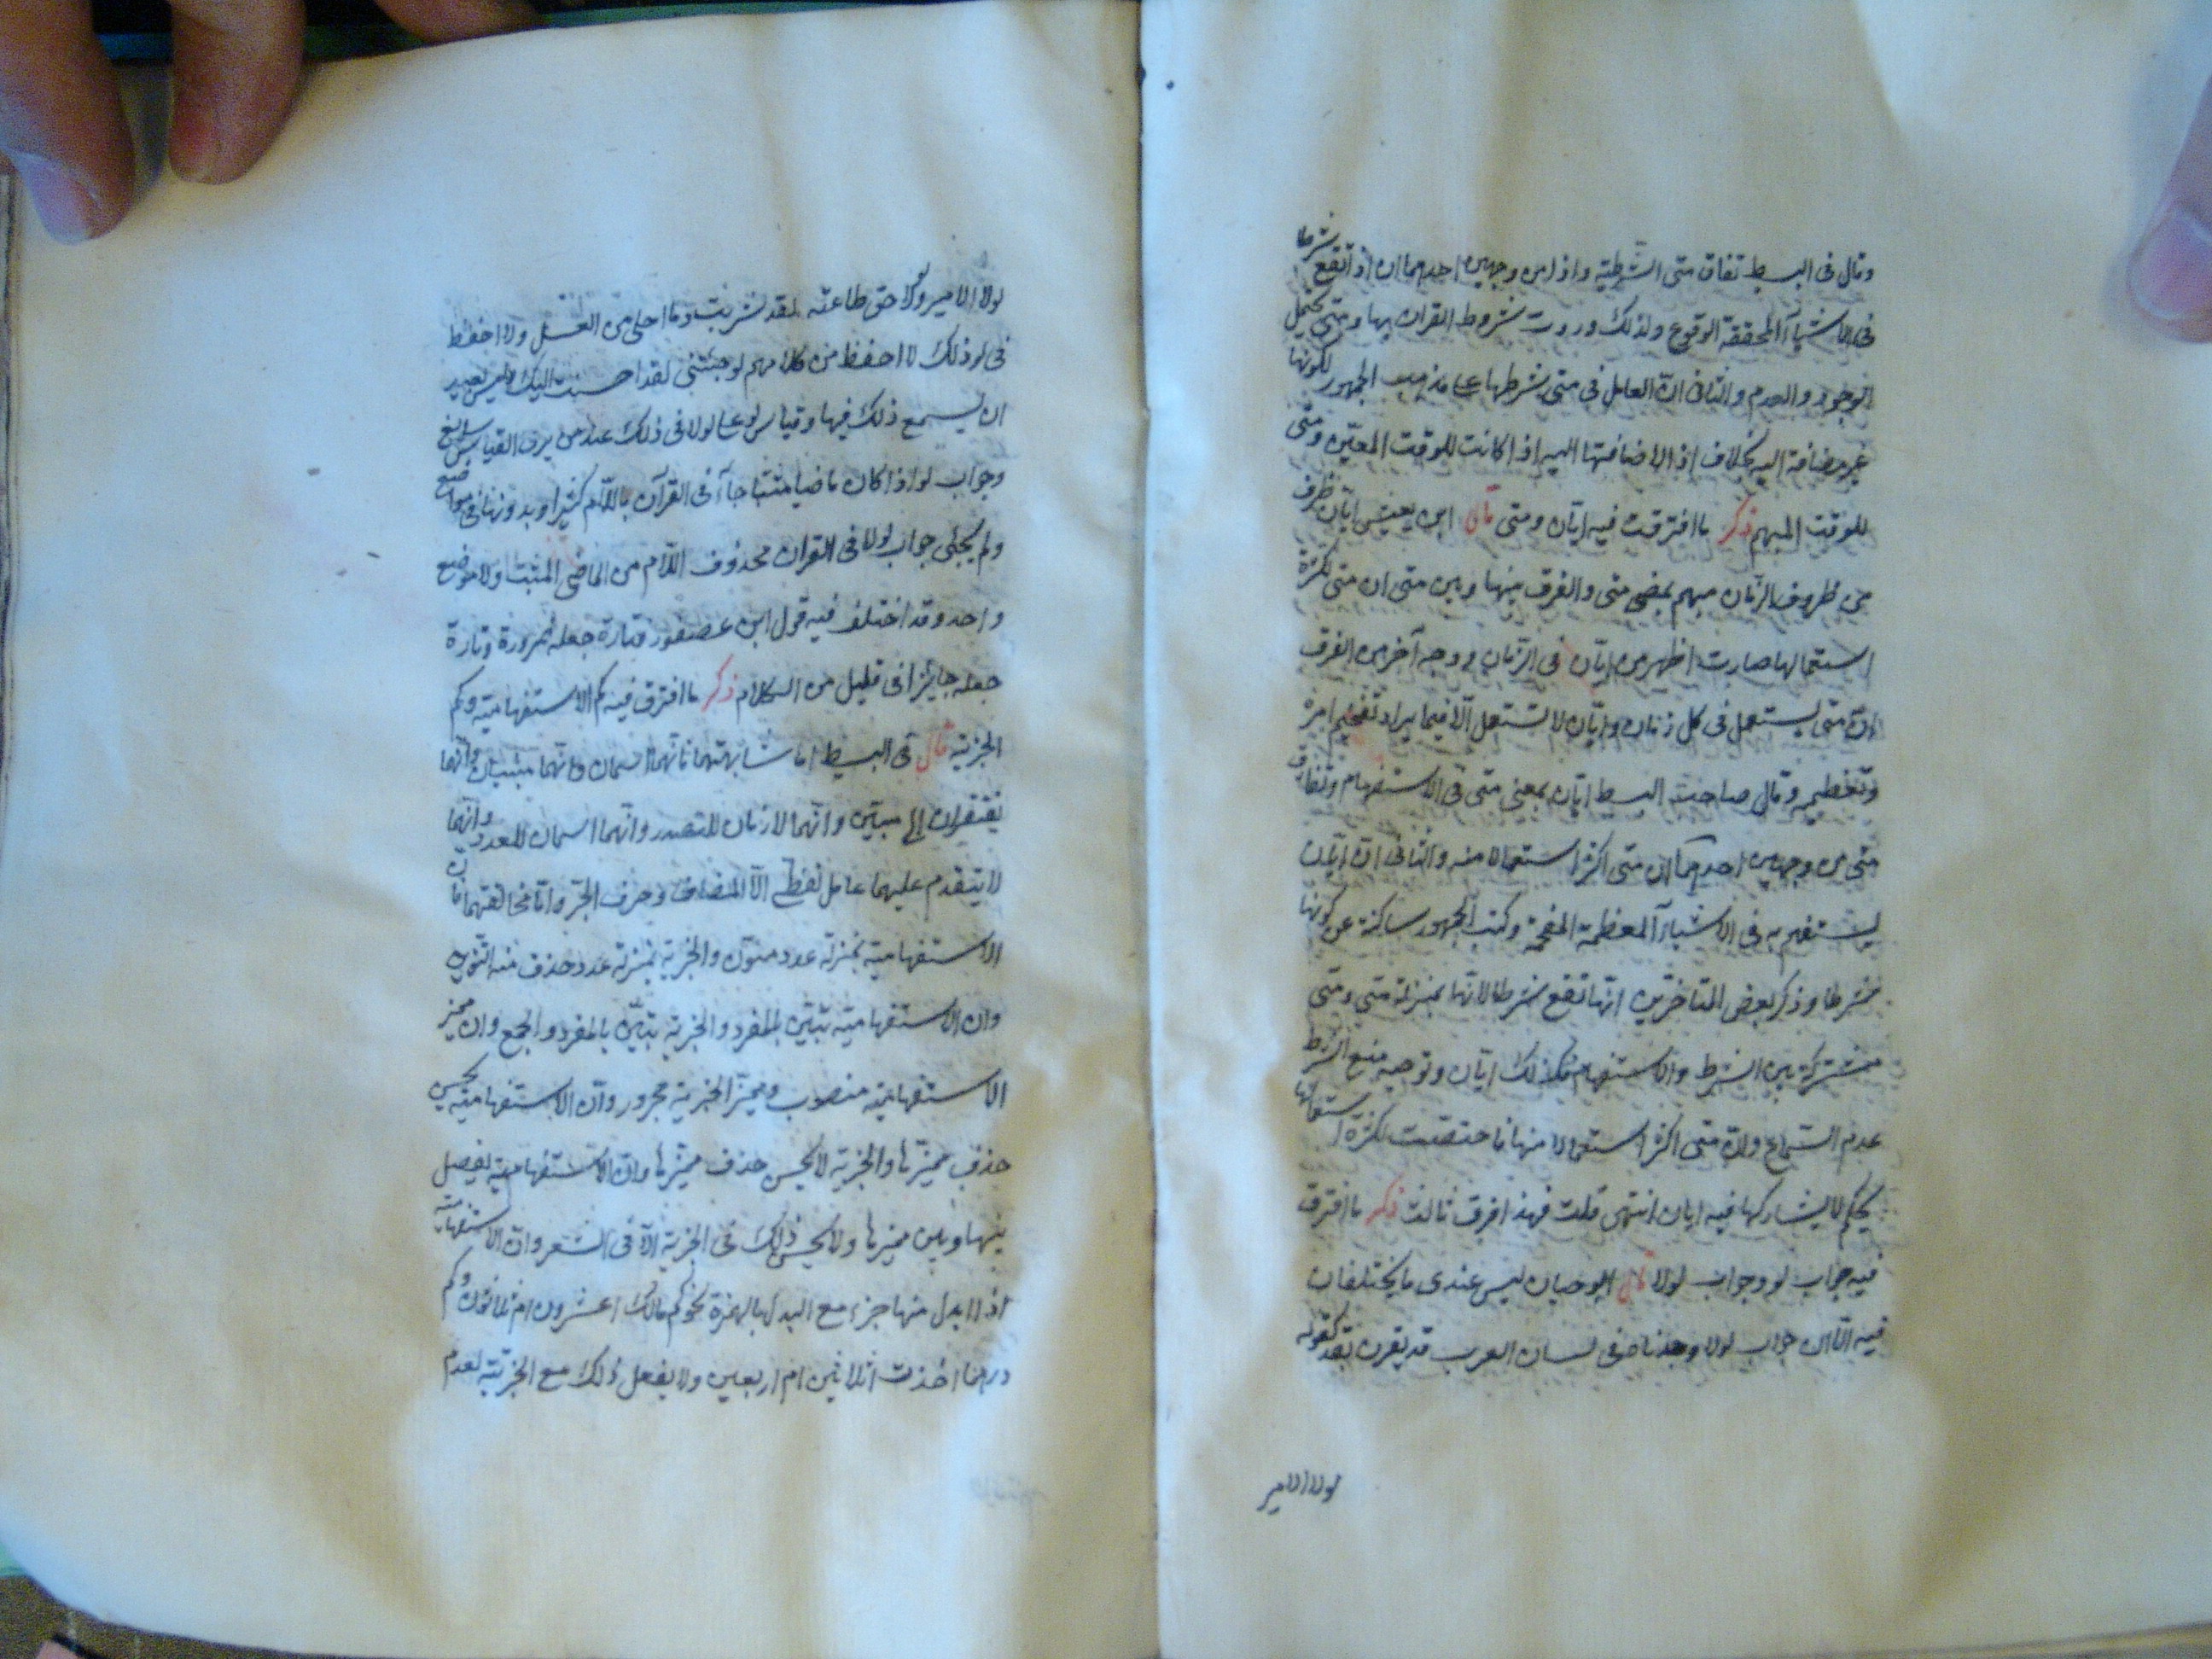 وقال فى البسيط تفارق متى الشرطية واذا من وجهين احدهما ان اذا تقع شرطا
فى الاشيآ المحققة الوقوع ولذلك وردت شروط القران بها ومتى يحتمل
الوجود والعدم والثانى ان العامل فى متى شرطها على مذهب الجمهور لكونها
غير مضافة اليه بخلاف اذا لاضافتها اليه اذا كانت للوقت المعين ومتى
للوقت المبهم ذكر ما افترقت فيه ايان ومتى قال ابن يعيش ايان ظرف
من ظروف الزمان مبهم بمعنى متى والفرق بينها وبين متى ان متى لكثرة
استعمالها صارت اظهر من ايان فى الزمان ووجه آخر من الفرق
ان متى يستعمل فى كل زمان وايان لا تستعمل الا فيما يراد تفخيم امره
وتعظيمه وقال صاحب البسيط ايان بمعنى متى فى الاستفهام وتفارق
متى من وجهين احدهما ان متى اكثر استعمالا منه والثانى ان ايان
يستفهم به فى الاشيآ المعظمة المفخمة وكتب الجمهور ساكتة عن كونها
شرطا وذكر بعض المتاخرين انها تقع شرطا لانها بمنزلة متى ومتى
مشتركة بين الشرط والاستفهام فكذلك ايان وتوجيه منع الشرط
عدم السماع وان متى اكثر استعمالا منها فاختصت لكثرة استعمالها
بحكم لا يشاركها فيه ايان انتهى قلت فهذا فرق ثالث ذكر ما افترق
فيه جواب لو وجواب لولا قال ابو حيان ليس عندى ما يختلفان
فيه الا ان جواب لولا وجدناه فى لسان العرب قد يقرن بقد كقوله
لولا الامير
لولا الامير ولولا حق طاعته لقد شربت دما احلى من العسل ولا احفظ
فى لو ذلك لا احفظ من كلامهم لو جئتنى لقد احسنت اليك وليس ببعيد
ان يسمع ذلك فيها وقياس لو على لولا فى ذلك عند من يرى القياس سايغ
وجواب لو اذا كان ماضيا مثبتا جآء فى القرآن باللام كثيرا وبدونها فى مواضع
ولم يجئ جواب لولا فى القران محذوف اللام من الماضى المثبت ولا موضع
واحد وقد اختلف فيه قول ابن عصفور فتارة جعله ضرورة وتارة
جعله جايزا فى قليل من الكلام ذكر ما افترق فيه كم الاستفهامية وكم
الخبرية قال فى البسيط اما مشابهتهما فانهما اسمان وانهما مبنيان وانهما
يفتقران الى مبين وانهما لازمان للتصدر وانهما اسمان للعدد وانهما
لا يتقدم عليهما عامل لفظى الا المضاف وحرف الجر واما مخالفتهما فان
الاستفهامية بمنزلة عدد منون والخبرية بمنزلة عدد حذف منه التنوين
وان الاستفهامية تبين بالمفرد والخبرية تبين بالمفرد والجمع وان مميز
الاستفهامية منصوب ومميز الخبرية مجرور وان الاستفهامية يحسن
حذف مميزها والخبرية لا يحسن حذف مميزها وان الاستفهامية يفصل
بينها وبين مميزها ولا يحسن ذلك فى الخبرية الا فى الشعر وان الاستفهامية
اذا ابدل منها جئ مع البدل بالهمزة نحو كم مالك اعشرون ام ثلاثون وكم
درهما اخذت اثلاثين ام اربعين ولا يفعل ذلك مع الخبرية لعدم